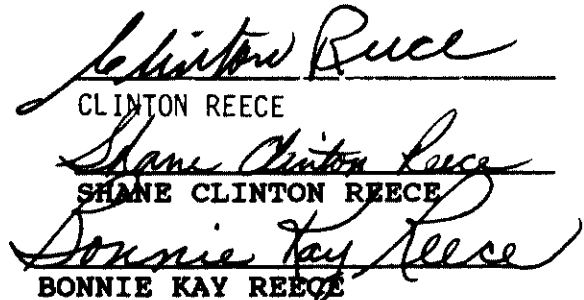 Clinton Reece
CLINTON REECE
Shane Clinton Reece
SHANE CLINTON REECE
Bonnie Kay Reece
BONNIE KAY REECE